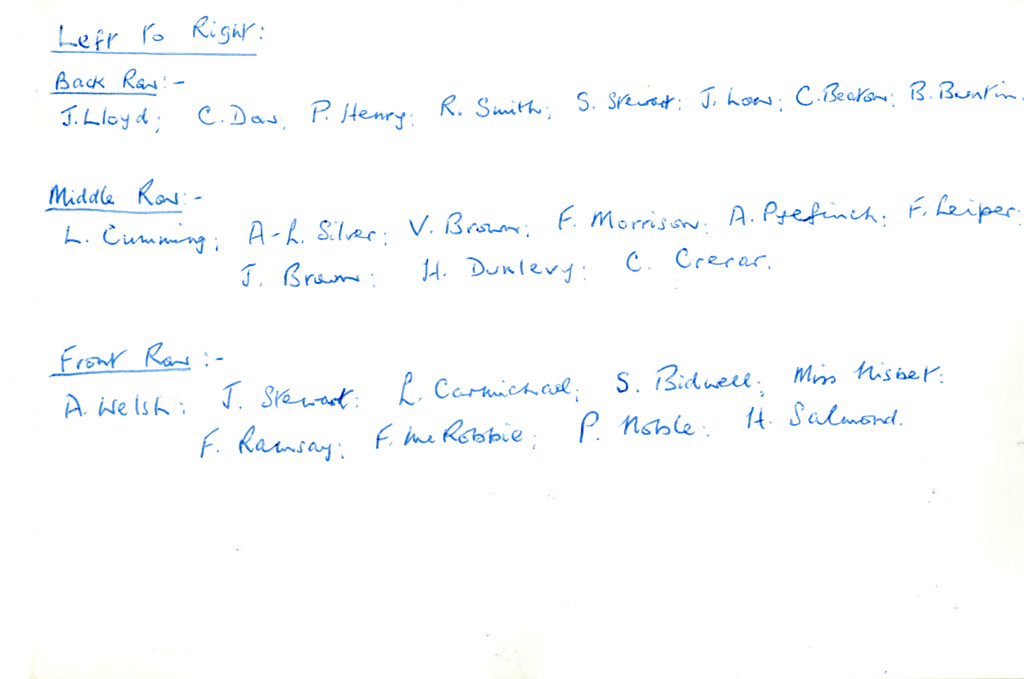 Left to Right:
Back Row:-
J. Lloyd; C. Dow; P. Henry; R. Smith; S. Stewart; J. Low; C. Beaton; B. Buntin.
Middle Row:-
L. Cumming; A-L. Silver; V. Brown; F. Morrison; A. F. Leiper;
J. Brown; H. Dunlevy; C. Crerar.
Front Row:-
A. Welsh; J. Stewart; L. Carmichael; S. Bidwell; Miss Nisbet;
F. Ramsay; F. McRobbie; P. Noble; H. Salmond.